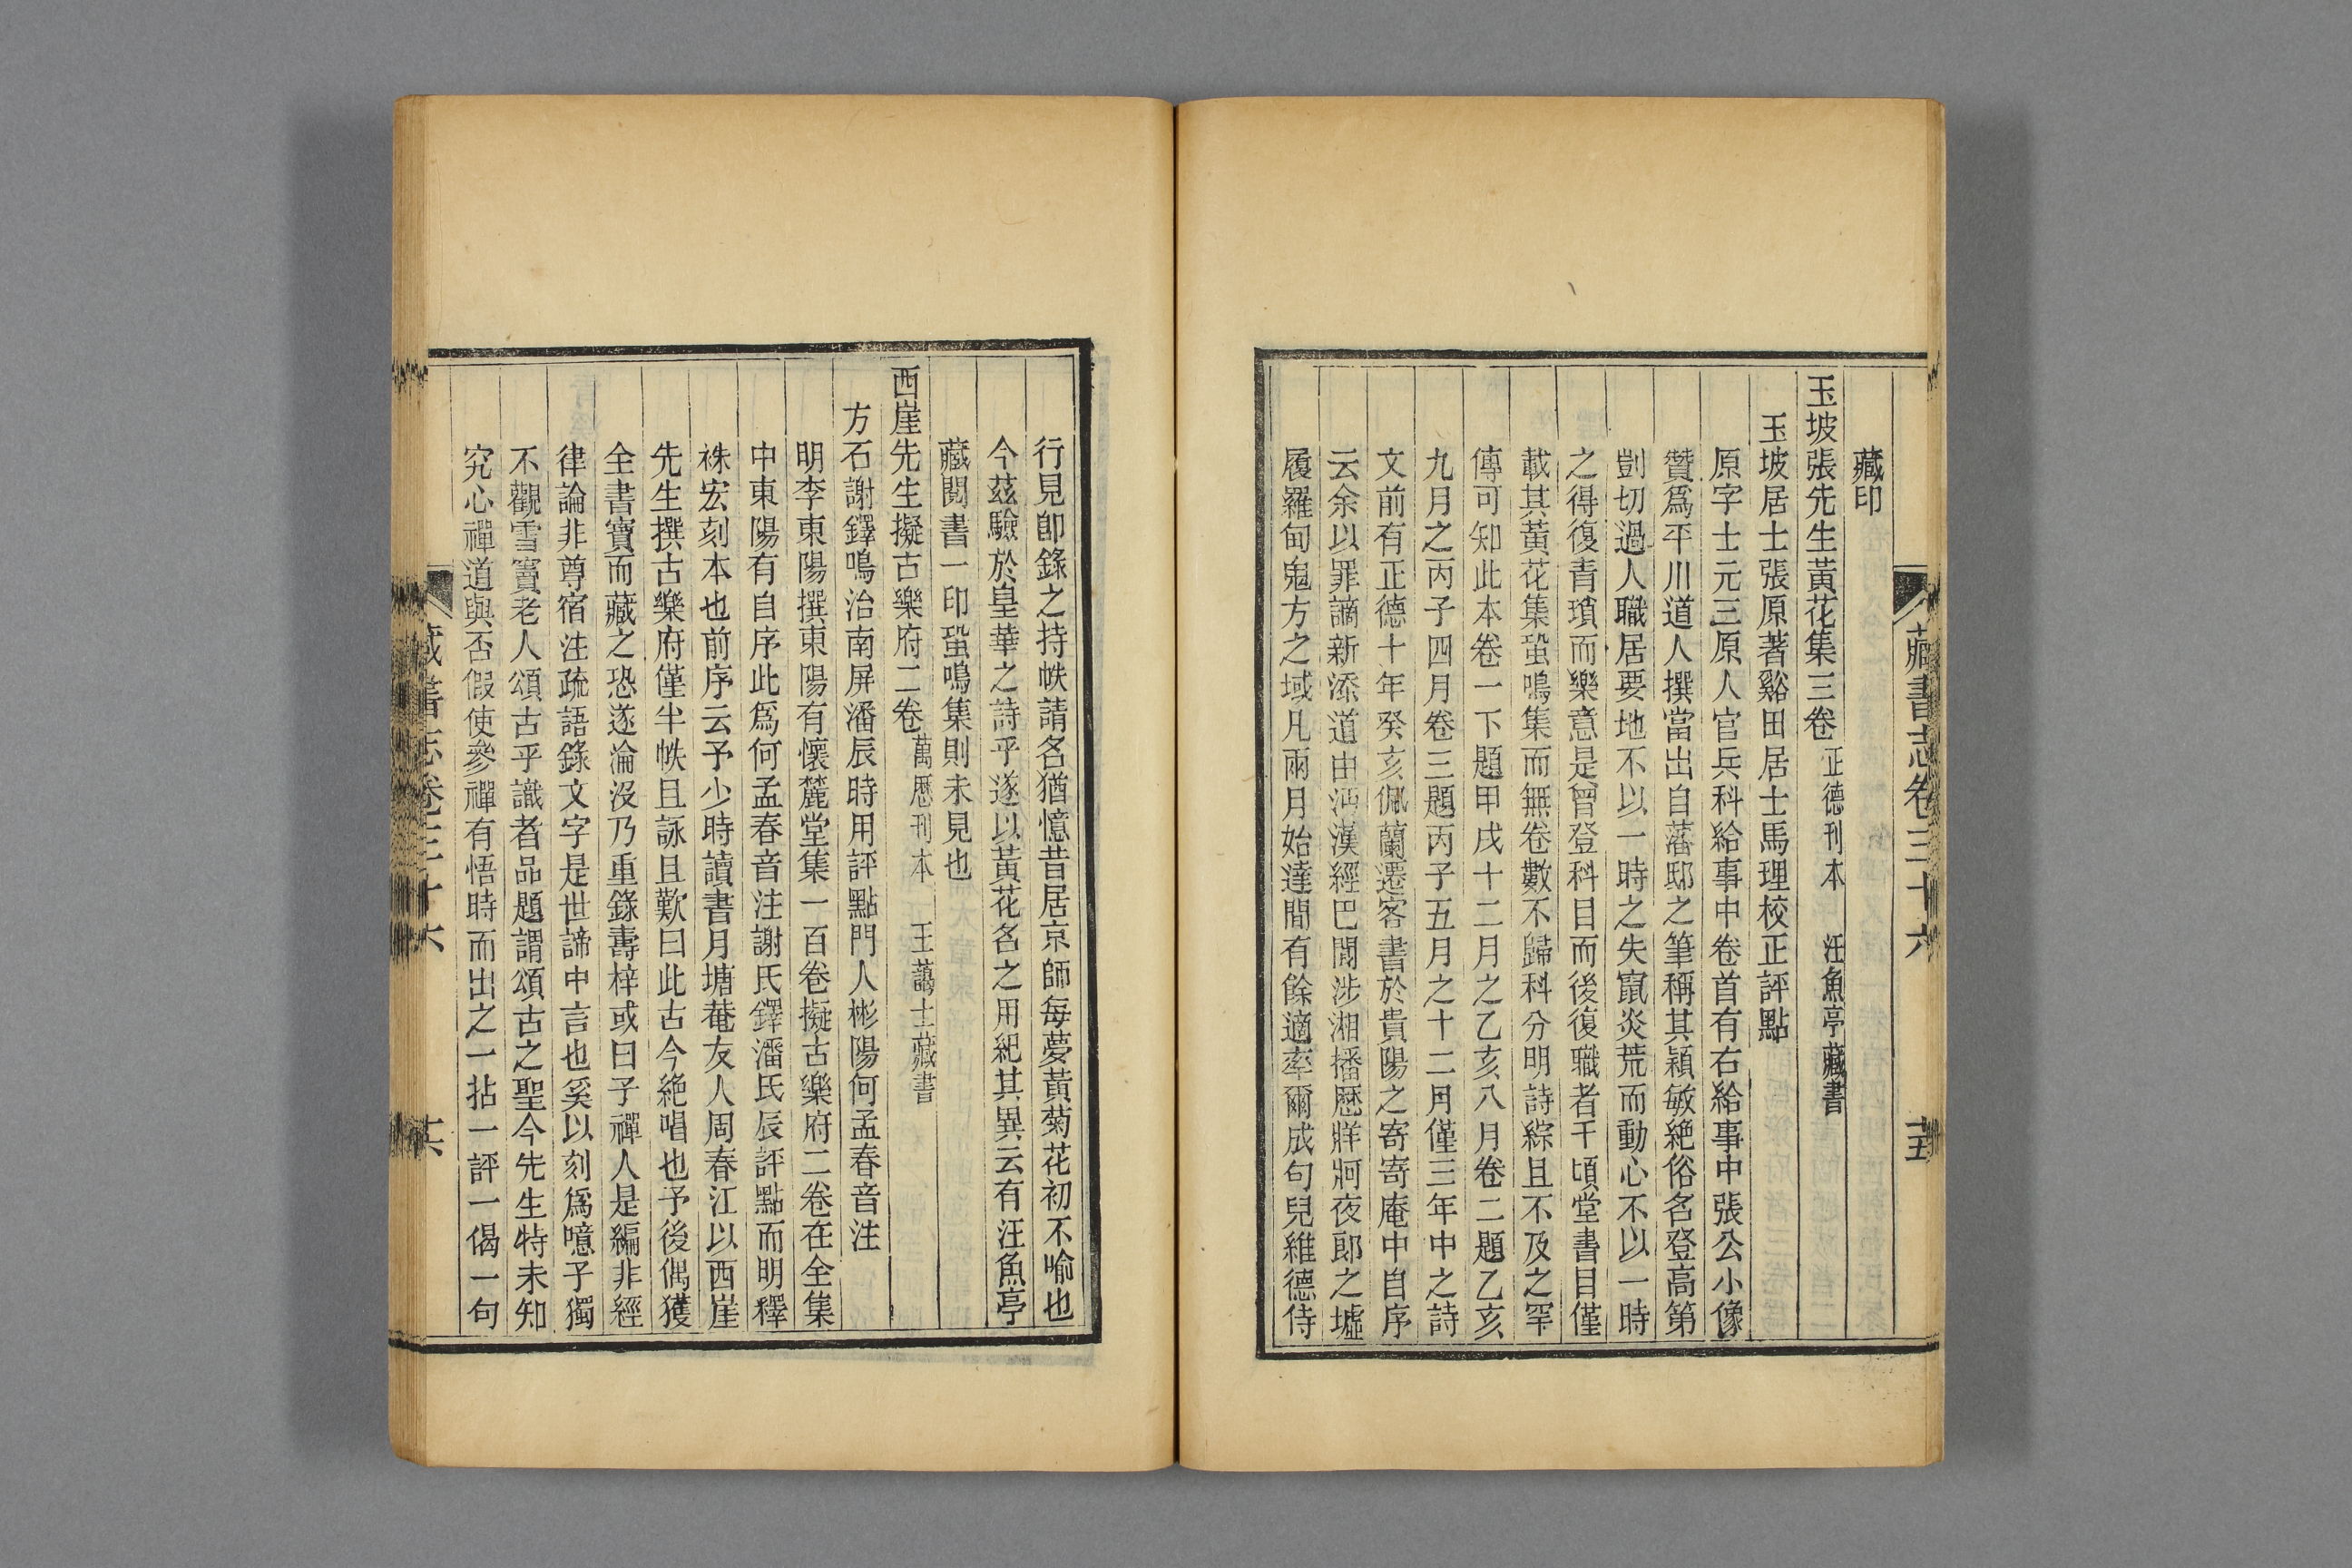 藏書志卷三十六
藏印
玉坡張先生黃花集三卷 正德刊本 汪魚亭藏書
玉坡居士張原著谿田居士馬理校正評點
原字士元三原人官兵科給事中卷首有右給事中張公小像
贊爲平川道人撰當出自藩邸之筆稱其穎敏絶俗名登高第
剴切過人職居要地不以一時之失竄炎荒而動心不以一時
之得復青瑣而樂意是曾登科目而後復職者千頃堂書目僅
載其黃花集蛩鳴集而無卷數不歸科分明詩綜且不及之罕
傳可知此本卷一下題甲戌十二月之乙亥八月卷二題乙亥
九月之丙子四月卷三題丙子五月之十二月僅三年中之詩
文前有正德十年癸亥佩蘭遷客書於貴陽之寄寄庵中自序
云余以罪謫新添道由沔漢經巴閬涉湘播歷牂牁夜郎之墟
履羅甸鬼方之域凡兩月始達閒有餘適率爾成句兒維德侍
行見卽錄之持帙請名猶憶昔居京師每夢黃菊花初不喻也
今茲驗於皇華之詩乎遂以黃花名之用紀其異云有汪魚亭
藏閱書一印蛩鳴集則未見也
西崖先生擬古樂府二卷 萬歷刊本 王藹士藏書
方石謝鐸鳴治南屏潘辰時用評點門人彬陽何孟春音注
明李東陽撰東陽有懷麓堂集一百卷擬古樂府二卷在全集
中東陽有自序此爲何孟春音注謝氏鐸潘氏辰評點而明釋
袾宏刻本也前序云予少時讀書月塘菴友人周春江以西崖
先生撰古樂府僅半帙且詠且歎曰此古今絶唱也予後偶獲
全書寶而藏之恐遂淪沒乃重錄壽梓或曰子禪人是編非經
律論非尊宿注疏語錄文字是世諦中言也奚以刻爲噫子獨
不觀雪竇老人頌古乎識者品題謂頌古之聖今先生特未知
究心禪道與否假使參禪有悟時而出之一拈一評一偈一句
藏書志卷三十六